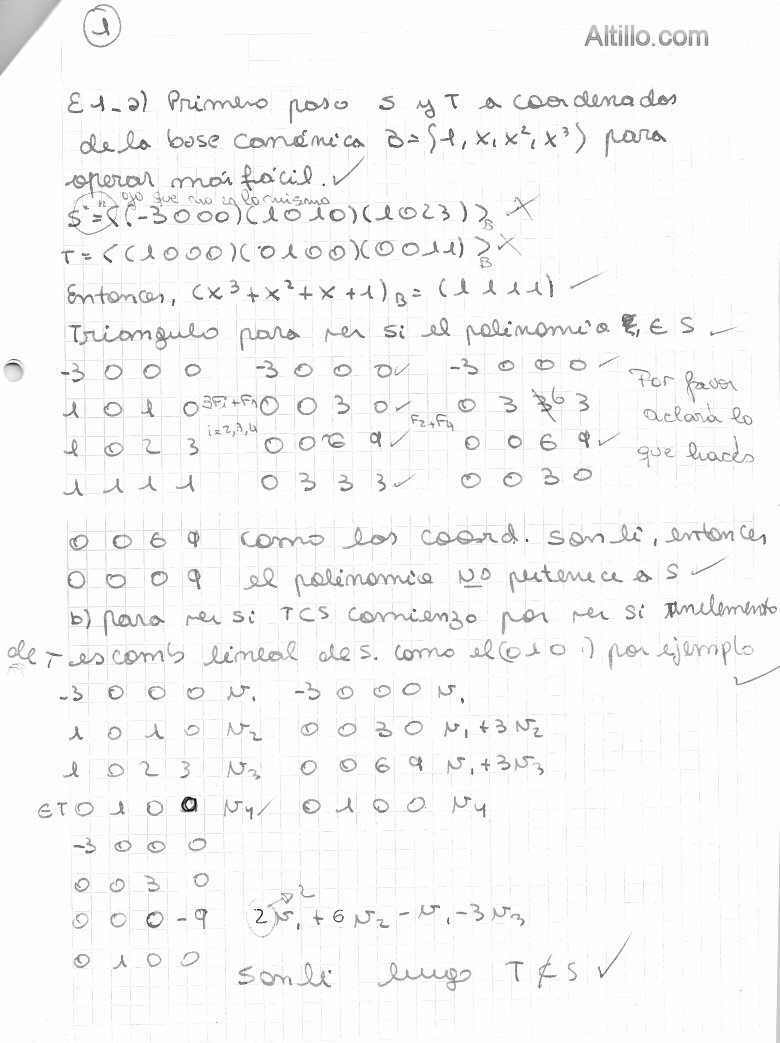 1
Altillo.com
E 1_a) Primero paso S y T a coordenadas
de la base canónica B={1, x, x², x³} para
operar más fácil. ✓
ojo que no es lo mismo
S = <(-3 0 0 0)(1 0 1 0)(1 0 2 3)>B X
T = <(1 0 0 0)(0 1 0 0)(0 0 1 1)>B X
Entonces, (x³+x²+x+1)B = (1 1 1 1)
Triangulo para ver si el polinomio ∈ S
-3 0 0 0 -3 0 0 0 ✓ -3 0 0 0 ✓
1 0 1 0 3Fi+F1 0 0 3 0 ✓ 0 3 6 3
i=2,3,4
1 0 2 3 0 0 6 9 ✓ F2+F4 0 0 6 9 ✓
1 1 1 1 0 3 3 3 ✓ 0 0 3 0
Por favor
aclará lo
que hacés
0 0 6 9 como los coord. son li, entonces
0 0 0 9 el polinomio NO pertenece a S ✓
b) para ver si T⊂S comienzo por ver si un elemento
de T es comb lineal de S. como el (0 1 0 ) por ejemplo
-3 0 0 0 v1 -3 0 0 0 v1
1 0 1 0 v2 0 0 3 0 v1+3v2
1 0 2 3 v3 0 0 6 9 v1+3v3
∈T 0 1 0 0 v4 ✓ 0 1 0 0 v4
-3 0 0 0
0 0 3 0
0 0 0 -9 2v1 + 6v2 - v1 - 3v3
2
0 1 0 0
son li luego T ⊄ S ✓